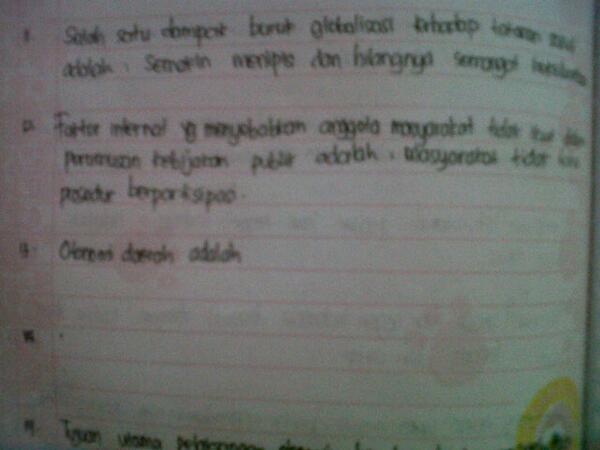 Salah satu dampak buruk globalisasi terhadap tatanan
adalah : Semakin menipis dan hilangnya semangat
Faktor internal yg menyebabkan anggota masyarakat tidak ikut dlm
perumusan kebijakan publik adalah : Masyarakat tidak tau
prosedur berpartisipasi.
13. Otonomi daerah adalah
15. .
Tujuan utama